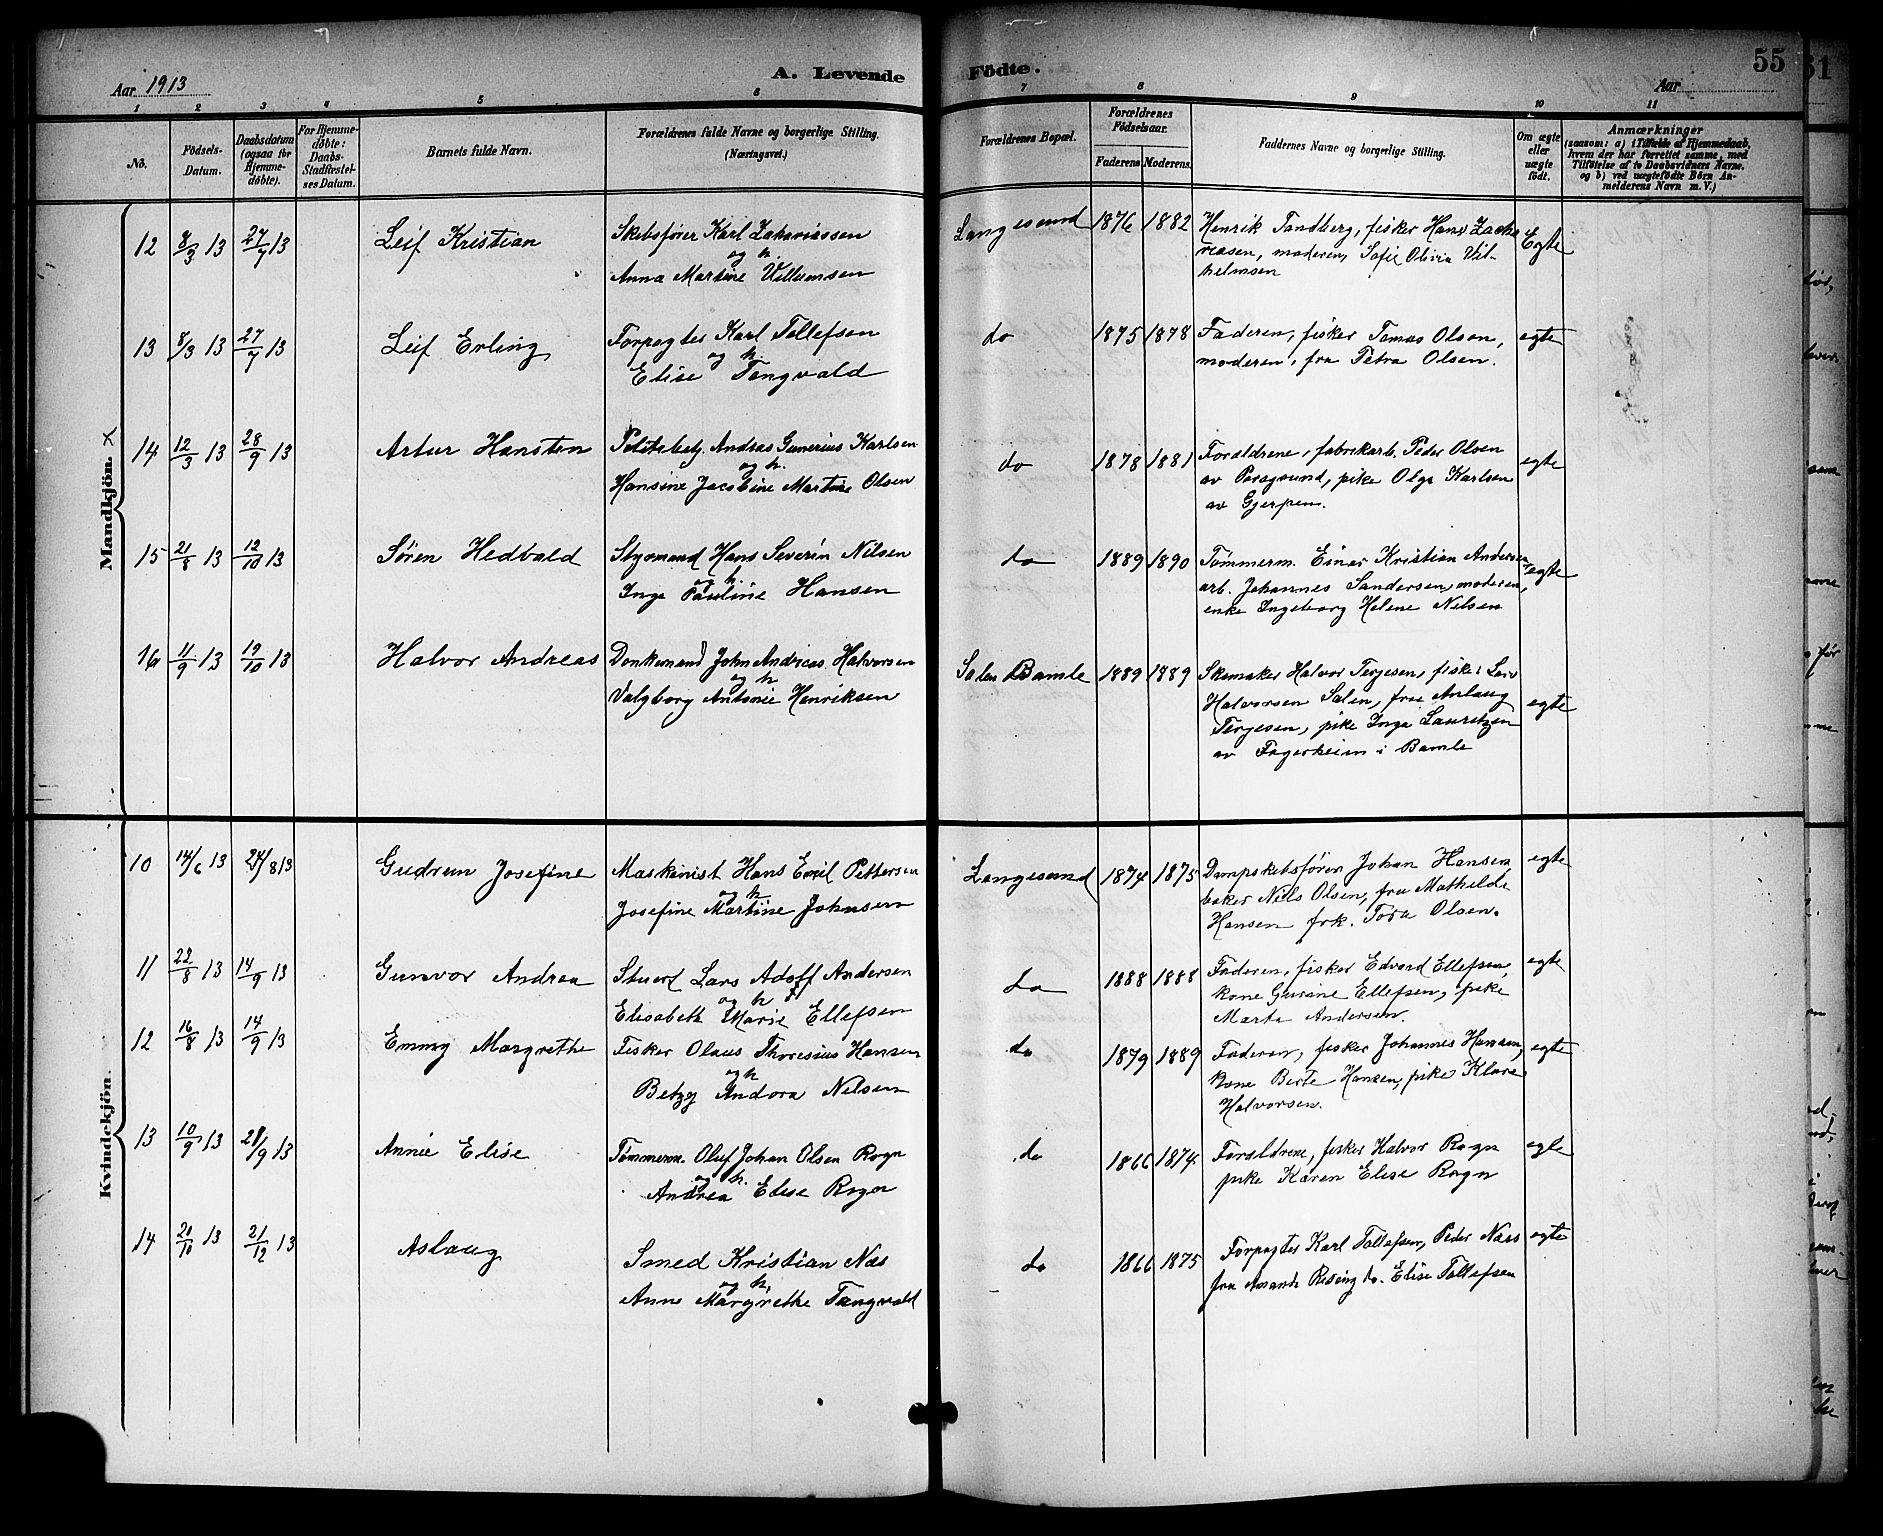 Aar 1913
A. Levende Födte.
55
Aar
1 2 3 4 5 6 7 8 9 10 11
No.
Födsels-Datum.
Daabsdatum (ogsaa for Hjemme-døbte).
For Hjemme-døbte: Daabs-Stadfæstel-ses Datum.
Barnets fulde Navn.
Forældrenes fulde Navne og borgerlige Stilling. (Næringsvei.)
Forældrenes Bopæl.
Forældrenes Födselsaar.
Faderens Moderens.
Faddernes Navne og borgerlige Stilling.
Om ægte eller uægte født.
Anmærkninger
(saasom: a) i Tilfælde af Hjemmedaab, hvem der har forrettet samme, med Tilföielse af to Daabsvidners Navne, og b) ved uægtefödte Börn An-melderens Navn m. V.)
Mandkjön.
12 8/3 13 27/7 13 Leif Kristian Skibsfører Karl Zakariassen
og h.
Anna Martine Villumsen
Langesund 1876 1882 Henrik Tandberg, fisker Hans Zacha
riasen, moderen, Sofie Olivia Vil-
helmsen
Egte
13 8/3 13 27/7 13 Leif Erling Forpagter Karl Tollefsen
og h.
Elise Tangvald
do 1875 1878 Faderen, fisker Tomas Olsen,
moderen, fru Petra Olsen.
egte
14 12/3 13 28/9 13 Artur Hansten Politibetj. Andras Gunerius Karlsen
og h.
Hansine Jacobine Martine Olsen
do 1878 1881 Foraldrene, fabrikarb. Peder Olsen
av Porsgrund, pike Olga Karlsen
av Gjerpen.
egte
15 21/8 13 12/10 13 Søren Hedvald Styrmand Hans Severin Nilsen
og h.
Inga Pauline Hansen
do 1889 1890 Tømmerm. Einar Kristian Andersen,
arb. Johannes Sandersen, moderen,
enke Ingeborg Helene Nilsen
egte
16 11/9 13 19/10 13 Halvor Andreas Donkemand John Andreas Halvorsen
og h
Valgborg Antonie Henriksen
Salen Bamle 1889 1889 Skomaker Halvor Terjesen, fisker Lars
Halvorsen Salen, fru Anlaug
Terjesen, pike Inga Lauritzen
av Fagerheim i Bamle
egte
Kvindekjön.
10 14/6 13 24/8 13 Gudrun Josefine Maskinist Hans Emil Pettersen
og h
Josefine Martine Johnsen
Langesund 1874 1875 Dampskibsfören Johan Hansen
baker Nils Olsen, fru Mathilde
Hansen frk. Tora Olsen.
egte
11 22/8 13 14/9 13 Gunvor Andrea Stuert Lars Adolf Andersen
og h
Elisabeth Marie Ellefsen
do 1888 1888 Faderen, fisker Edvard Ellefsen,
kone Gurine Ellefsen, pike
Marta Andersen.
egte
12 16/8 13 14/9 13 Emmy Margrethe Fisker Olaus Thoresius Hansen
og h
Betzy Andora Nilsen
do 1879 1889 Faderen, fisker Johannes Hansen,
kone Berte Hansen, pike Klara
Halvorsen.
egte
13 10/9 13 28/9 13 Annie Elise Tømmerm. Oluf Johan Olsen Rogn
og h.
Andrea Elise Rogn
do 1866 1874 Foraldrene, fisker Halvor Rogn
pike Karen Elise Rogn
egte
14 20/10 13 21/12 13 Aslaug Smed Kristian Næs
og h.
Anne Margrethe Tangvald
do 1866 1875 Forpagter Karl Tollefsen, Peder Næss
fru Amanda Rising do. Elise Tollefsen
egte